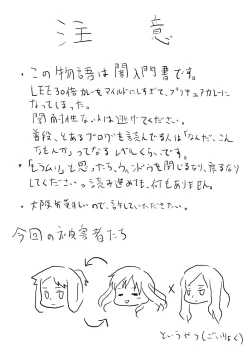 注 意
・この物語は闇入門書です。
LEE30倍カレーをマイルドにしすぎて、プリキュアカレーに
なってしまった。
闇耐性ない人は逃げてください。
普段、とあるブログを読んでる人は「なんだ、こん
なもんか」ってなる レベルくらいです。
・「もうムリ」と思ったら、ウィンドウを閉じるなり、戻るなり
してください。読み進めても、何もありません。
・大阪
ので、許していただきたい。
今回の被害者たち
×
というやつ(ごいりょく)